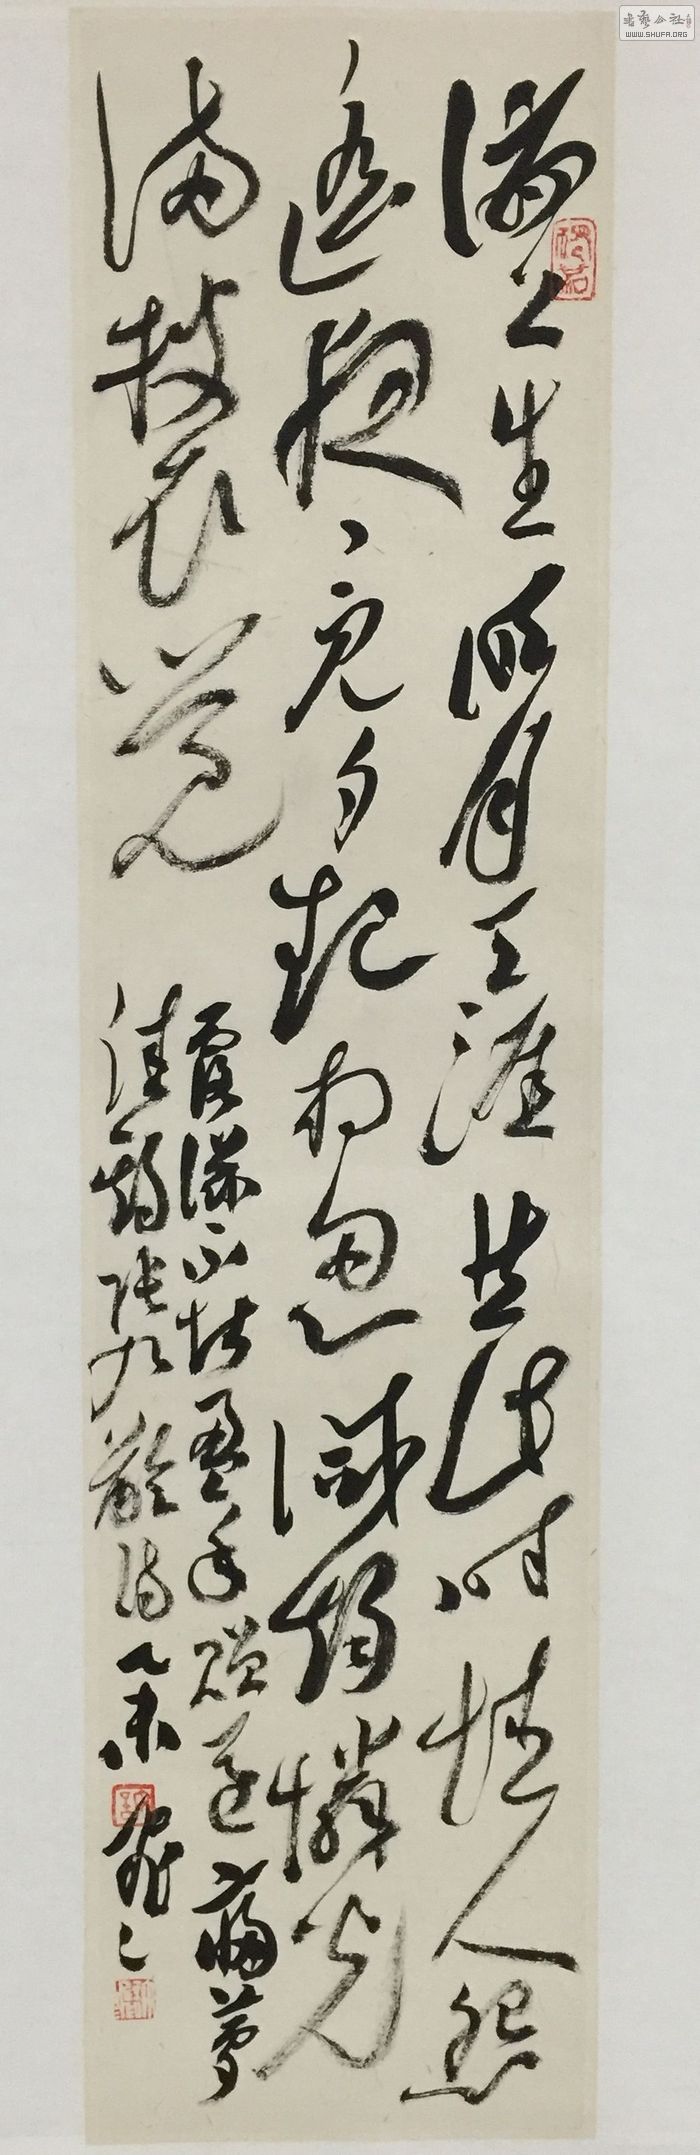 書藝公社
WWW.SHUFA.ORG
海上生明月天涯共此時情人怨
遙夜竟夕起相思滅燭憐光
滿披衣覺
露滋不堪盈手贈還寢夢
佳期張九齡詩乙未